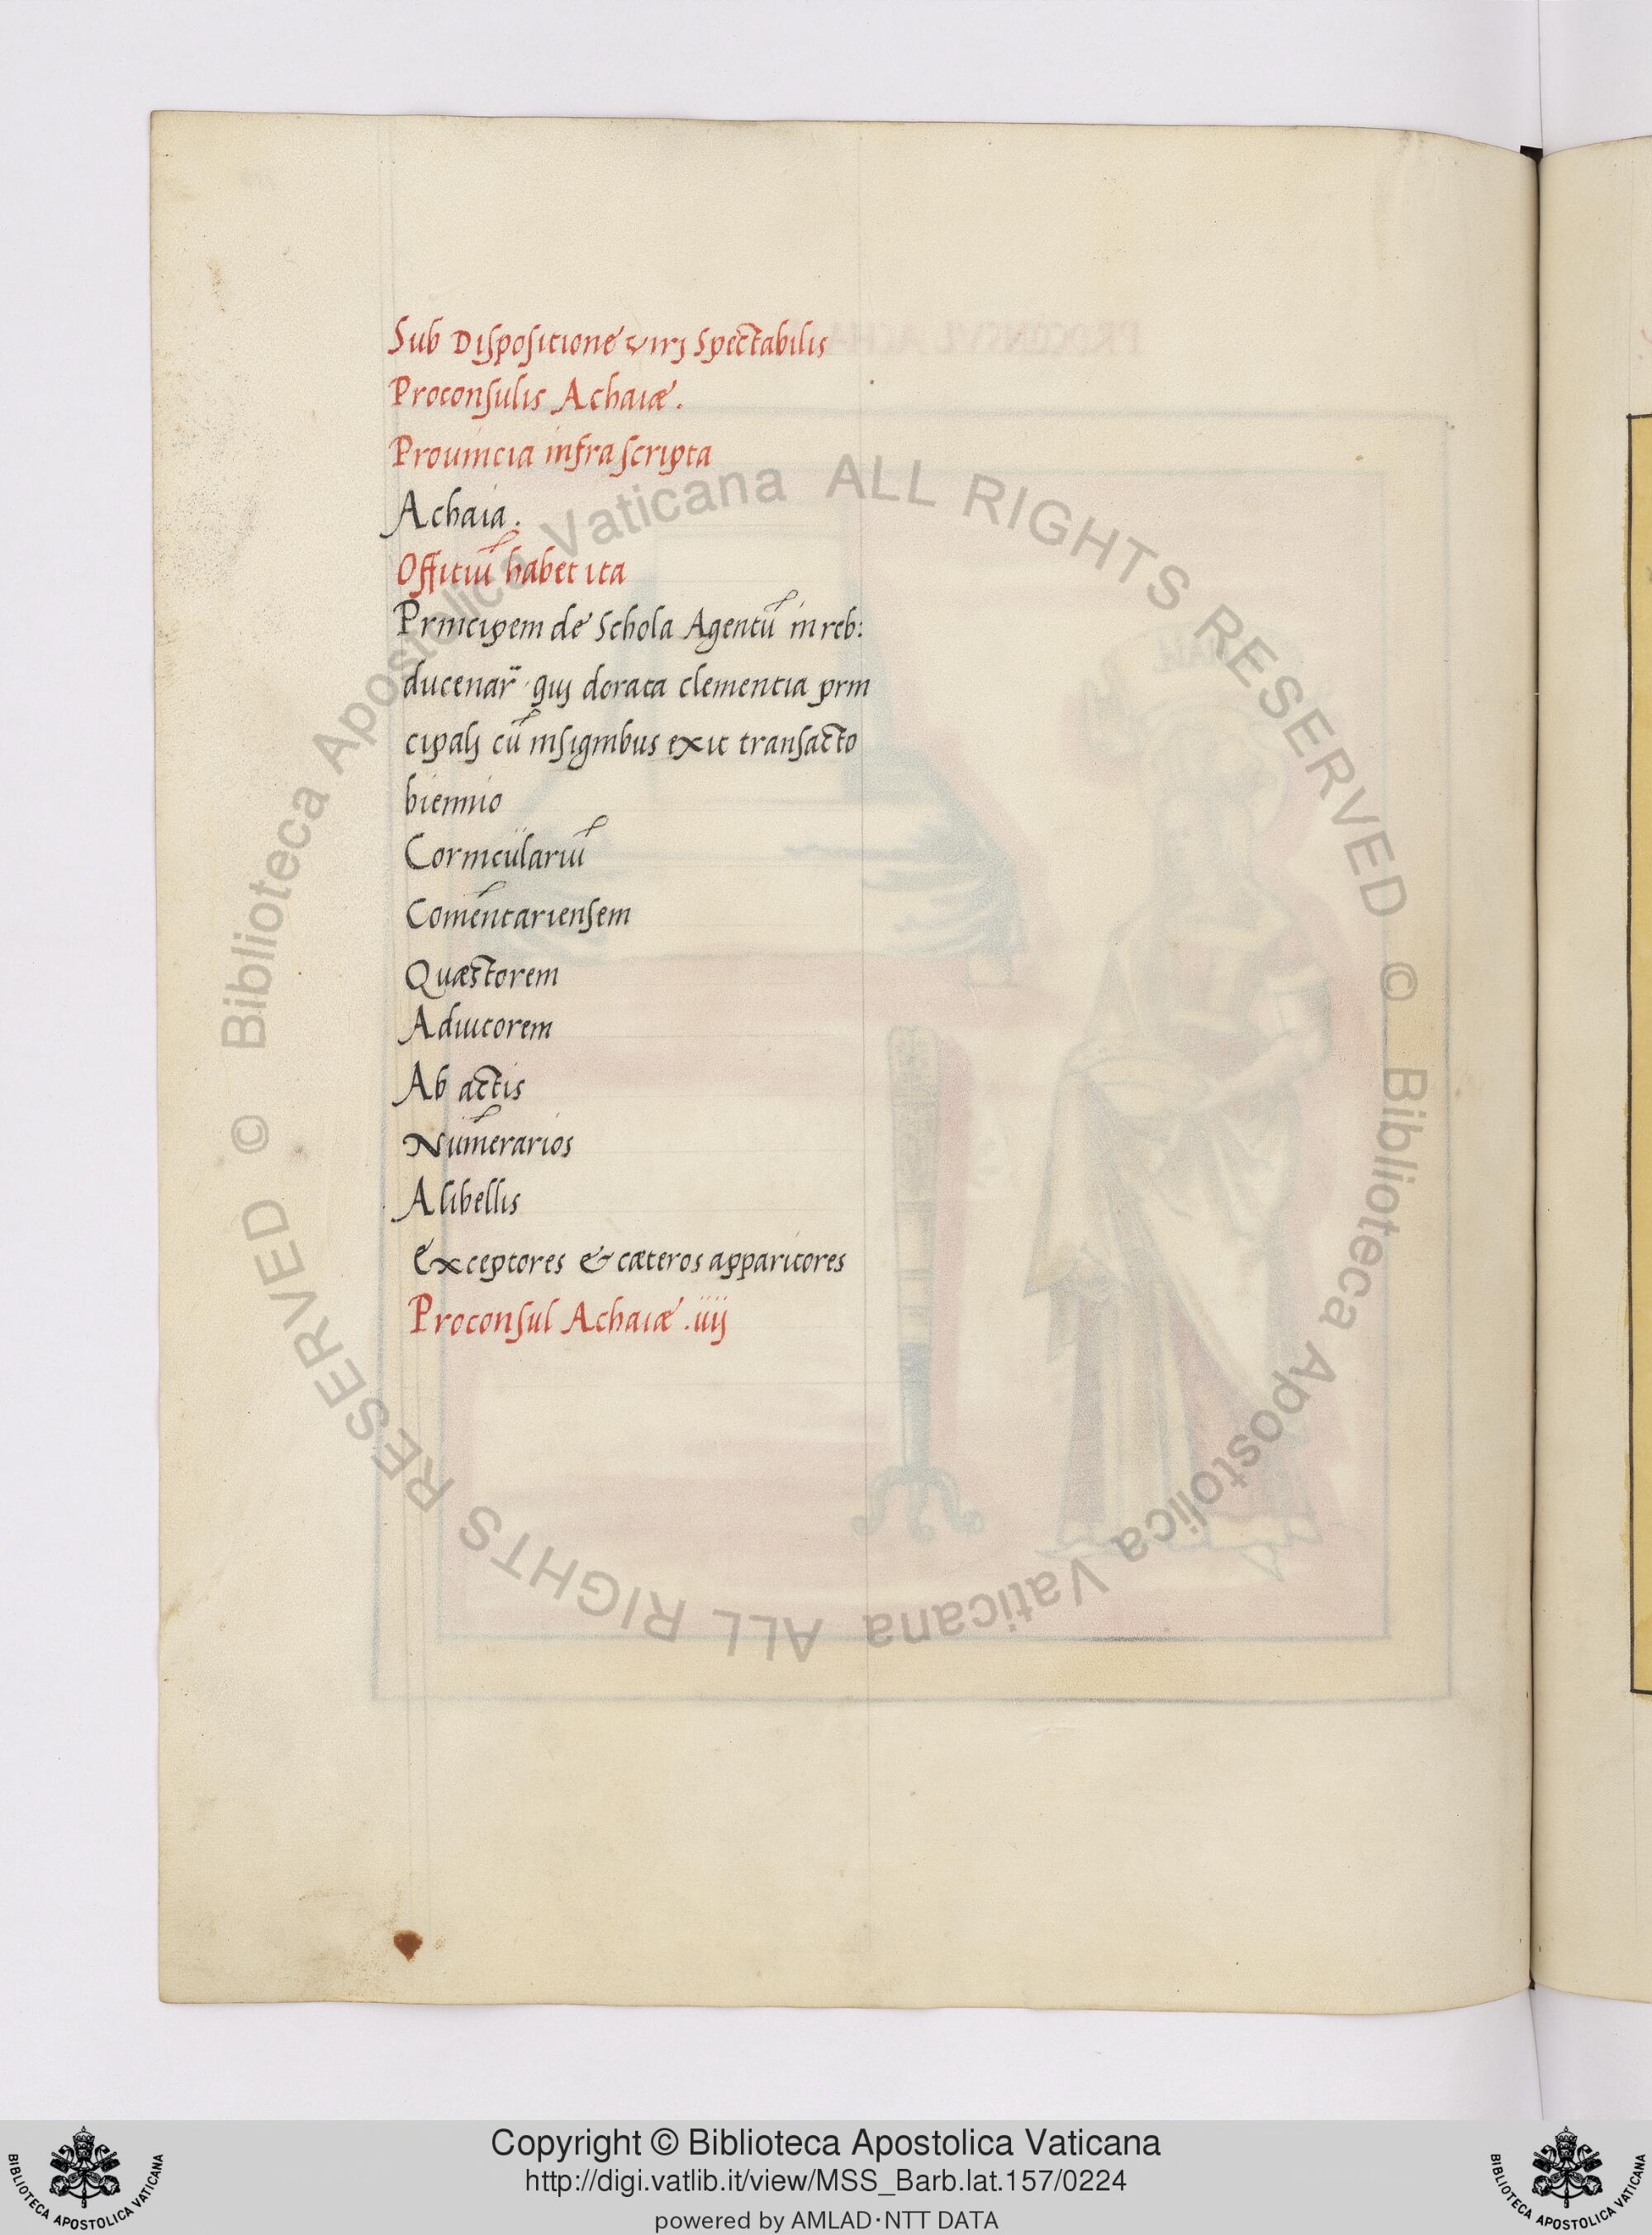 Sub Dispositione virj Spectabilis
Proconsulis Achaiæ.
Prouincia infra scripta
Achaia.
Offitiū habet ita
Principem de Schola Agentū in reb:
ducenar̄ · quj dorata clementia prin
cipalj cū insignibus exit transacto
biennio
Corniculariū
Com̄entariensem
Quæstorem
Adiutorem
Ab actis
Num̄erarios
A libellis
Exceptores & cæteros apparitores
Proconsul Achaiæ .iiij
© Biblioteca Apostolica Vaticana ALL RIGHTS RESERVED
© Biblioteca Apostolica Vaticana ALL RIGHTS RESERVED
Copyright © Biblioteca Apostolica Vaticana
http://digi.vatlib.it/view/MSS_Barb.lat.157/0224
powered by AMLAD·NTT DATA
BIBLIOTECA APOSTOLICA VATICANA
BIBLIOTECA APOSTOLICA VATICANA